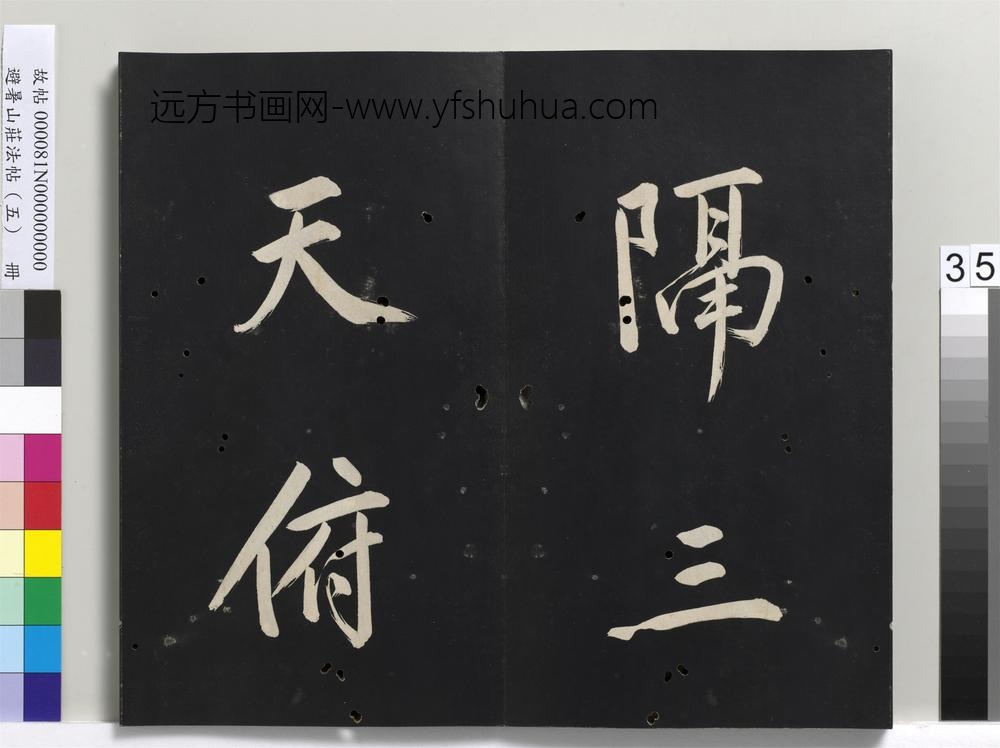 隔三
天俯
远方书画网-www.yfshuhua.com
故帖 000081N000000000
避暑山莊法帖（五） 冊
35